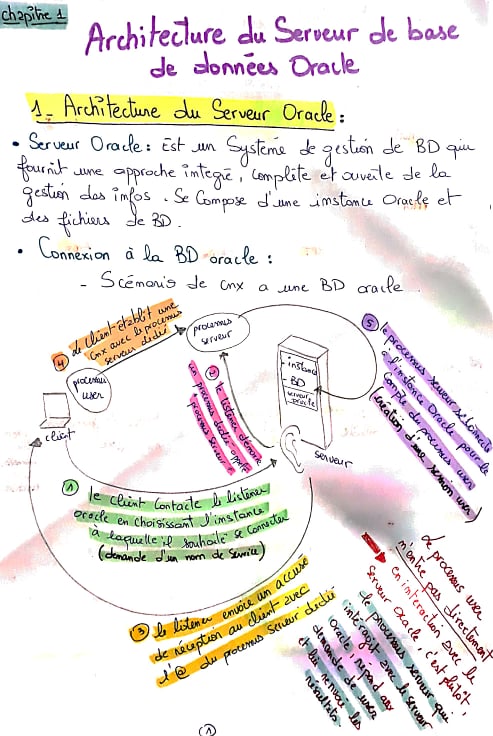 chapitre 1
Architecture du Serveur de base
de données Oracle
1- Architecture du Serveur Oracle :
• Serveur Oracle : Est un Système de gestion de BD qui
fournit une approche integré, complète et ouverte de la
gestion des infos. Se Compose d'une instance Oracle et
des fichiers de BD.
• Connexion à la BD oracle :
- Scénario de cnx a une BD oracle
④ Le Client établit une
cnx avec le processus
serveur dédié
processus
user
client
processus
serveur
② le listener démarre
un processus dédié appelé
processus serveur
instance
BD
serveur
oracle
serveur
⑤ le processus serveur se connecte
à l'instance Oracle pour le
compte du processus user
création d'une session user
① le client contacte le listener
oracle en choisissant l'instance
à laquelle il souhaite se connecter
(demande d'un nom de service)
③ le listener envoie un accusé
de réception au client avec
l'@ du processus serveur dédié
Le processus user
n'entre pas directement
en interaction avec le
serveur oracle, c'est plutôt
le processus serveur qui
intéragit avec le serveur
oracle, répond aux
demandes de user
et lui renvoi les
résultats.
①